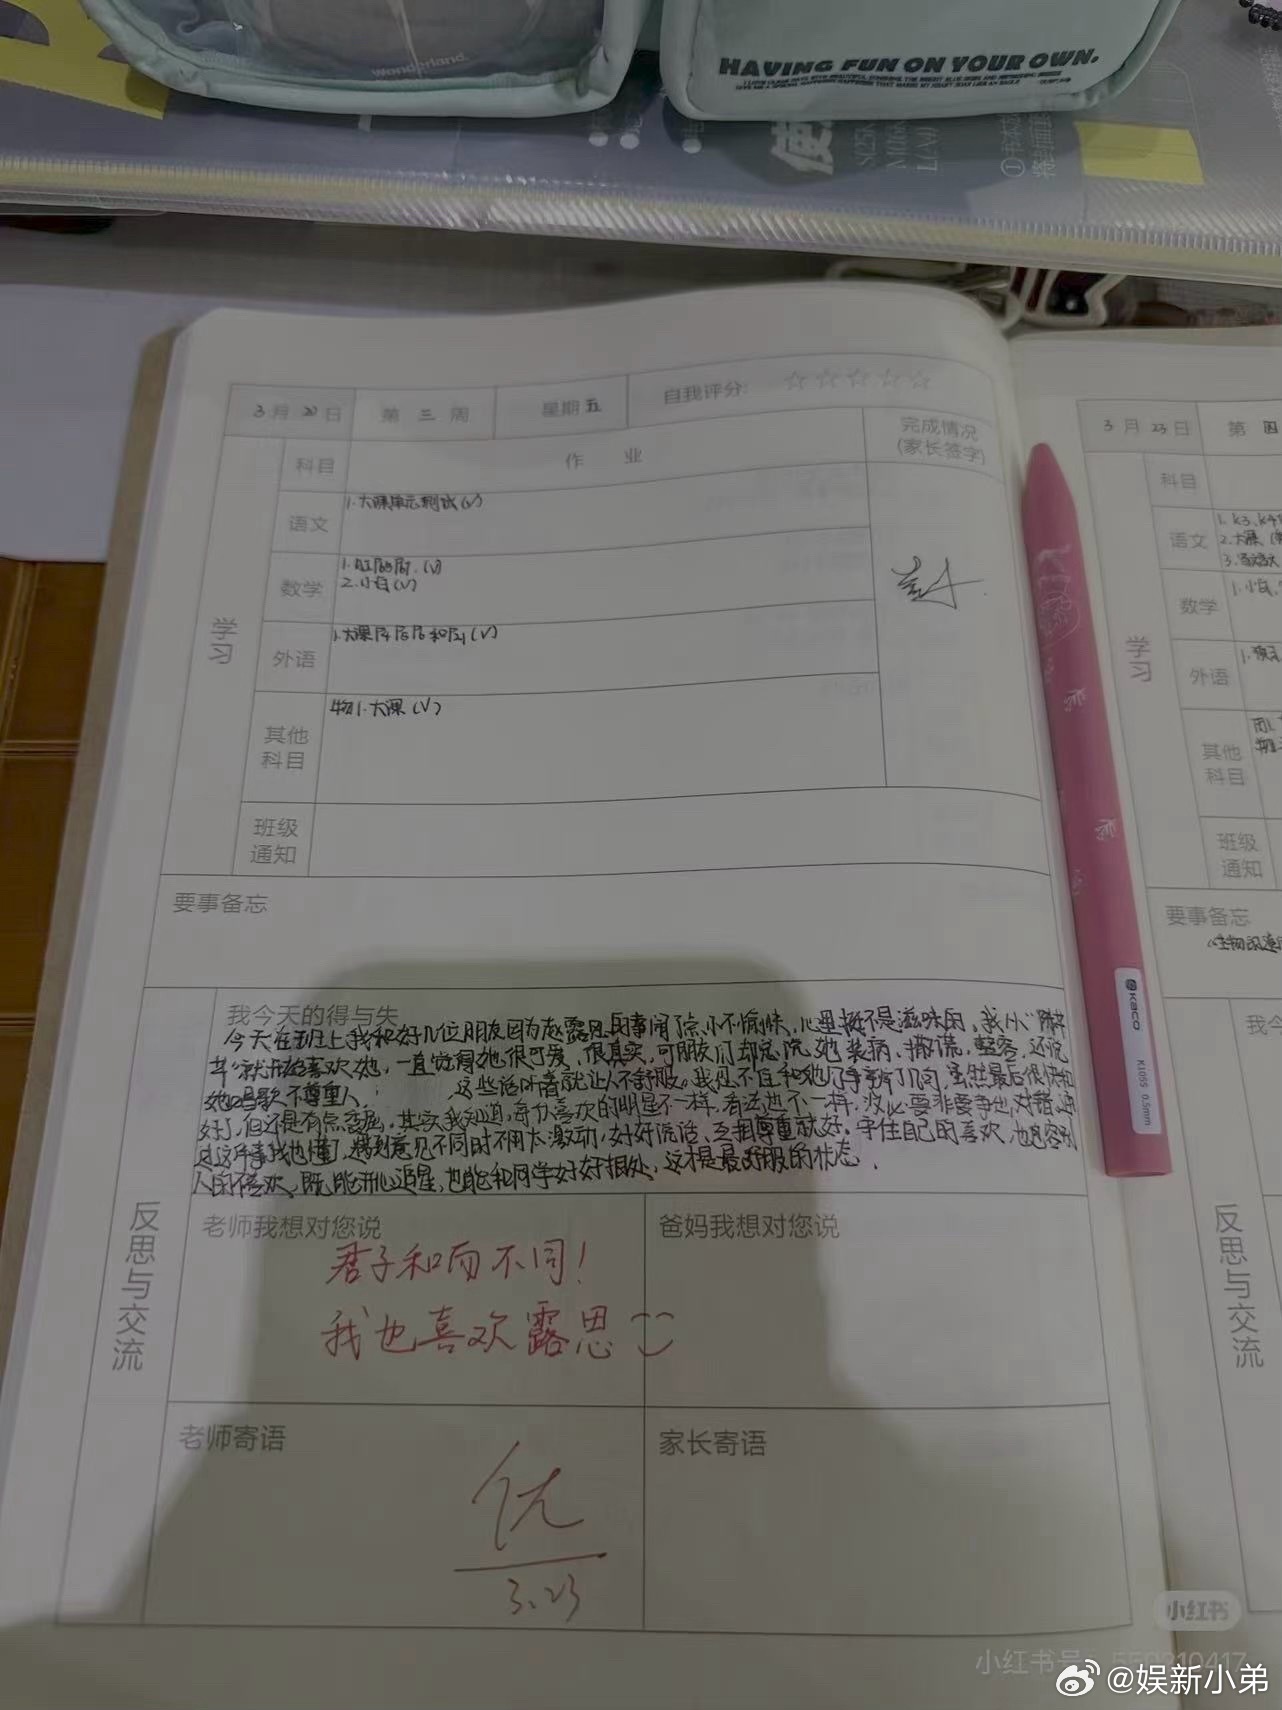 wonderland.
HAVING FUN ON YOUR OWN.
使
S(25K
M(16K
L(A4)
3月20日 第三周 星期五 自我评分: ☆☆☆☆☆
科目 作业 完成情况
(家长签字)
学习
语文 1.大课单元测试(√)
数学
2.小白(√)
外语 1.大课
其他
科目 物1.大课(√)
班级
通知
要事备忘
反思与交流
我今天的得与失
今天在班上我和好几位朋友因为赵露思的事闹了点小不愉快,心里挺不是滋味的,我从
就开始喜欢她,一直觉得她很可爱,很真实,可朋友们却总说她装病,撒谎,整容,还说
她唱歌不尊重人, 这些话听着就让人不舒服。我忍不住和他们争辩了几句,虽然最后很快和
好了,但还是有点委屈,其实我知道,每个人喜欢的明星不一样,看法也不一样,没必要非要争出对错,
这件事我也懂了,遇到意见不同时不用太激动,好好说话,互相尊重就好。守住自己的喜欢,也包容别
人的不喜欢,既能开心追星,也能和同学好好相处,这才是最舒服的状态.
老师我想对您说
君子和而不同!
我也喜欢露思
爸妈我想对您说
老师寄语
优
3.23
家长寄语
KACO
K1055 0.5mm
3月23日 第四
科目
语文
2.大课
数学 1.小白
外语
学习
其他
科目
班级
通知
要事备忘
我今
反思与交流
小红书
小红书号
@娱新小弟